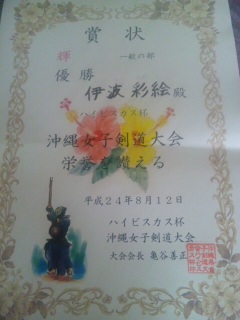 賞状
輝 一般の部
優勝
伊波 彩絵 殿
ハイビスカス杯
沖縄女子剣道大会
栄誉を讃える
平成24年8月12日
ハイビスカス杯
沖縄女子剣道大会
大会会長 亀谷善正